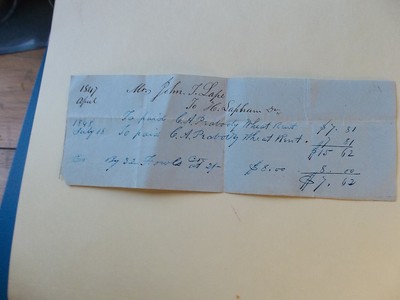 1847 Mr John T. Lape
April To H. Lapham Dr
To paid C.A. Peabody Wheat Rent $7. 81
1848
July 18 To paid C.A. Peabody Wheat Rent. 7 81
$15 62
By 32 Fowls at 2/- $8.00 8. 00
$7. 62